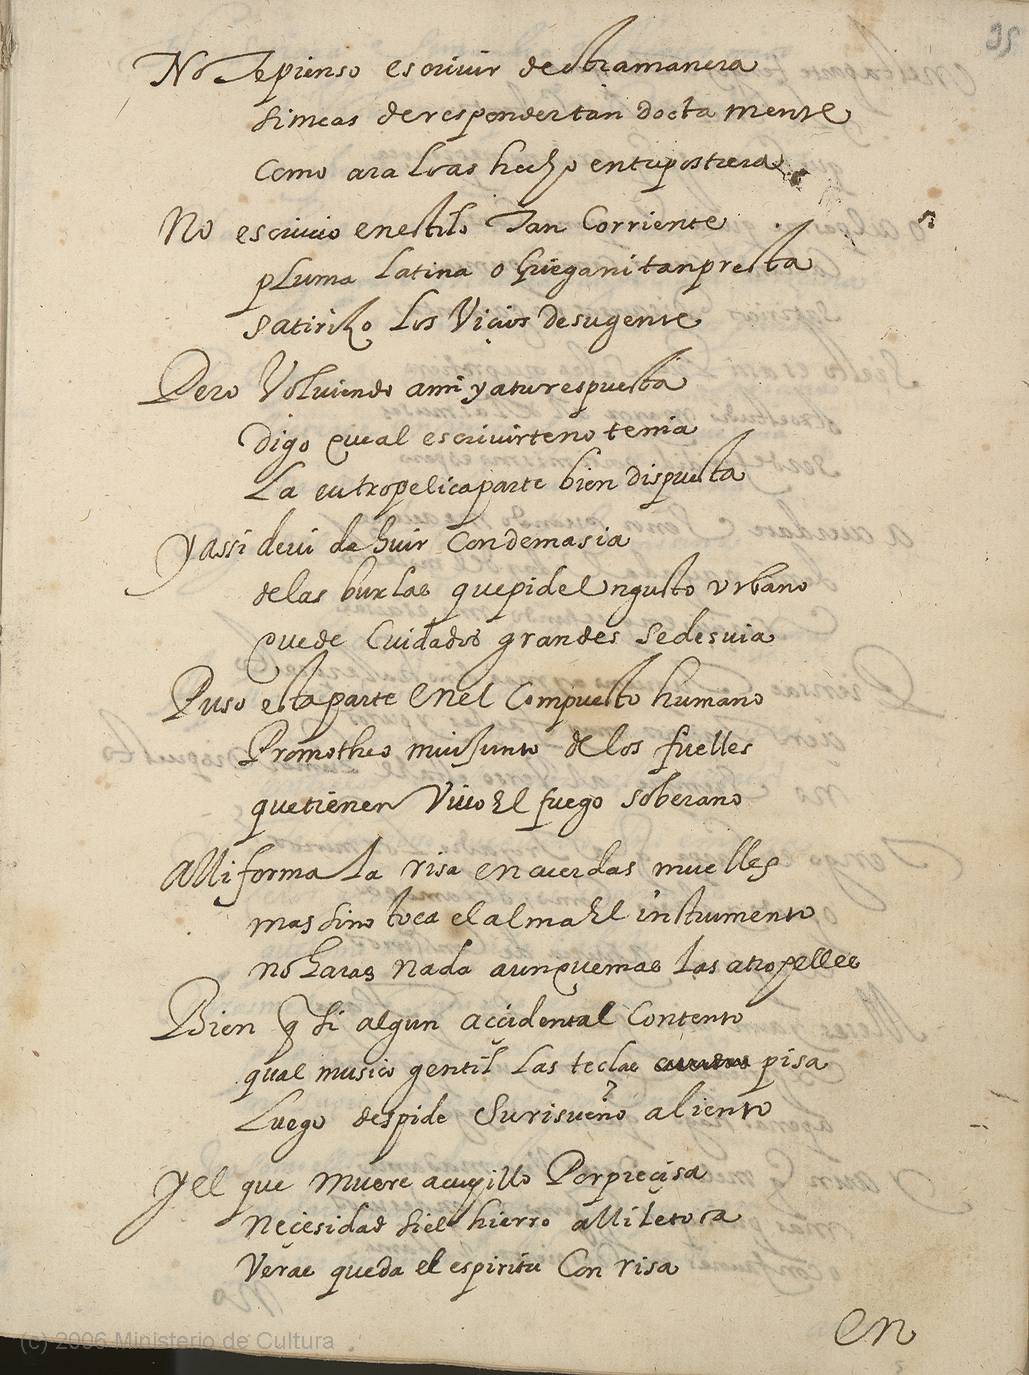 35
No Te pienso escriuir de otra manera
si meas de responder tan docta mente
Como ara loas hecho en tu postrera
No escriuio en estilo Tan Corriente
pluma latina o griega ni tan presta
satirizo los Viçios de su gente
Pero Voluiendo ami y atu respuesta
digo que al escriuirte no tenia
La eutropelica parte bien dispuesta
Y assi deui de huir Con demasia
de las burlas que pide Un gusto vrbano
que de Cuidados grandes se desuia
Puso esta parte En el Compuesto humano
Promotheo mui Junto de los fuelles
que tienen Viuo El fuego soberano
Alli forma La risa en cuerdas muelles
mas sino toca el alma El instrumento
no haras nada aunque mas las atropelles
Bien q si algun acçidental Contento
qual musico gentil las teclas pisa
Luego despide Su risueño aliento
Y el que muere a cuchillo Por preçisa
neçesidad si el hierro alli le toca
Veras queda el espiritu Con risa
en
(c) 2006 Ministerio de Cultura